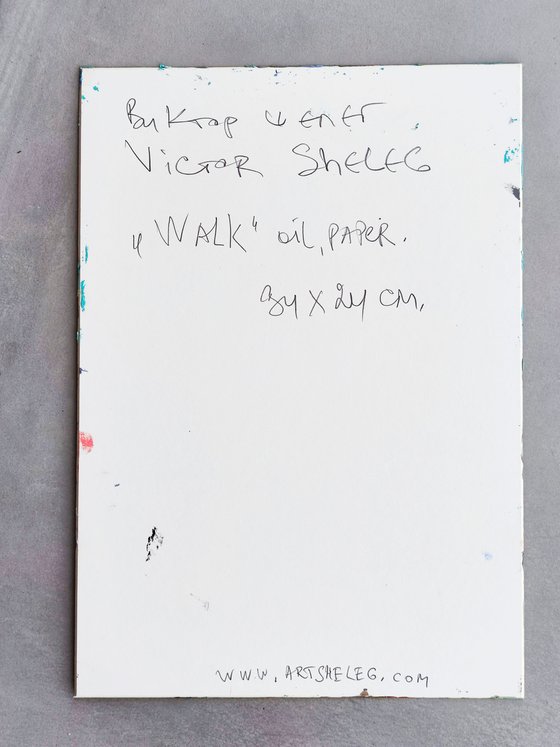 Виктор Шелег
Victor Sheleg
„WALK“ oil, PAPER.
34 x 24 cm.
www.artsheleg.com